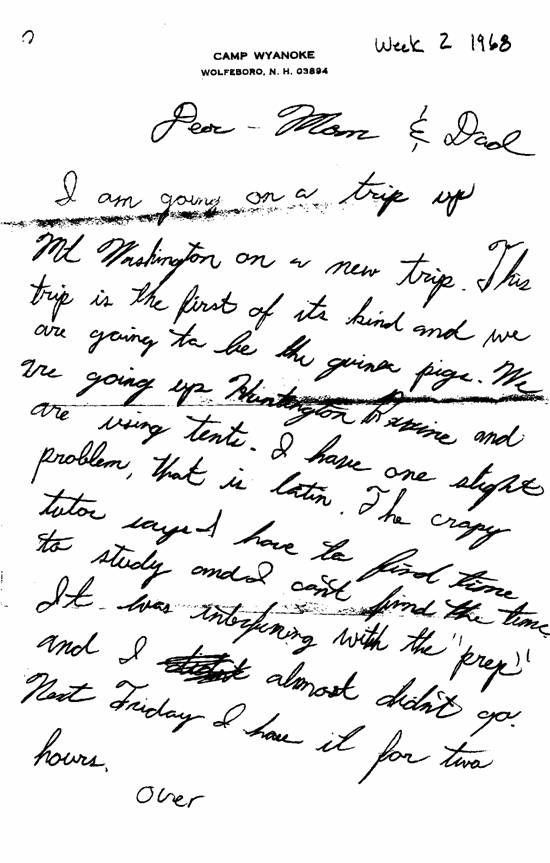 Week 2 1968
CAMP WYANOKE
WOLFEBORO, N. H. 03894
Dear - Mom & Dad
I am going on a trip up
Mt Washington on a new trip. This
trip is the first of its kind and we
are going to be the guinea pigs. We
are going up Huntington Ravine and
are using tents. I have one slight
problem, that is latin. The crapy
tutor says I have to find time
to study and I can't find the time.
It was interfering with the "prep"
and I didn't almost didn't go.
Next Friday I have it for two
hours.
over